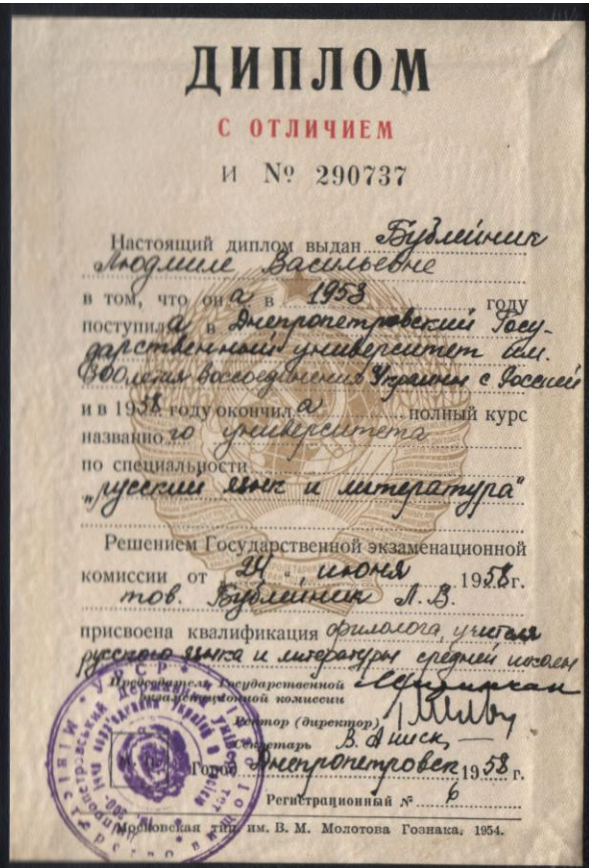 ДИПЛОМ
С ОТЛИЧИЕМ
И № 290737
Настоящий диплом выдан Бублейник
Людмиле Васильевне
в том, что она в 1953 году
поступила в Днепропетровский Госу-
дарственный университет им.
300летия Воссоединения Украины с Россией
и в 1958 году окончила полный курс
названного университета
по специальности
„русский язык и литература"
Решением Государственной экзаменационной
комиссии от 24 июня 1958 г.
тов. Бублейник Л. В.
присвоена квалификация филолога, учителя
русского языка и литературы средней школы
Председатель Государственной
экзаменационной комиссии
Ректор (директор)
Секретарь
Город Днепропетровск 1958 г.
Регистрационный № 6
Московская тип. им. В. М. Молотова Гознака, 1954.